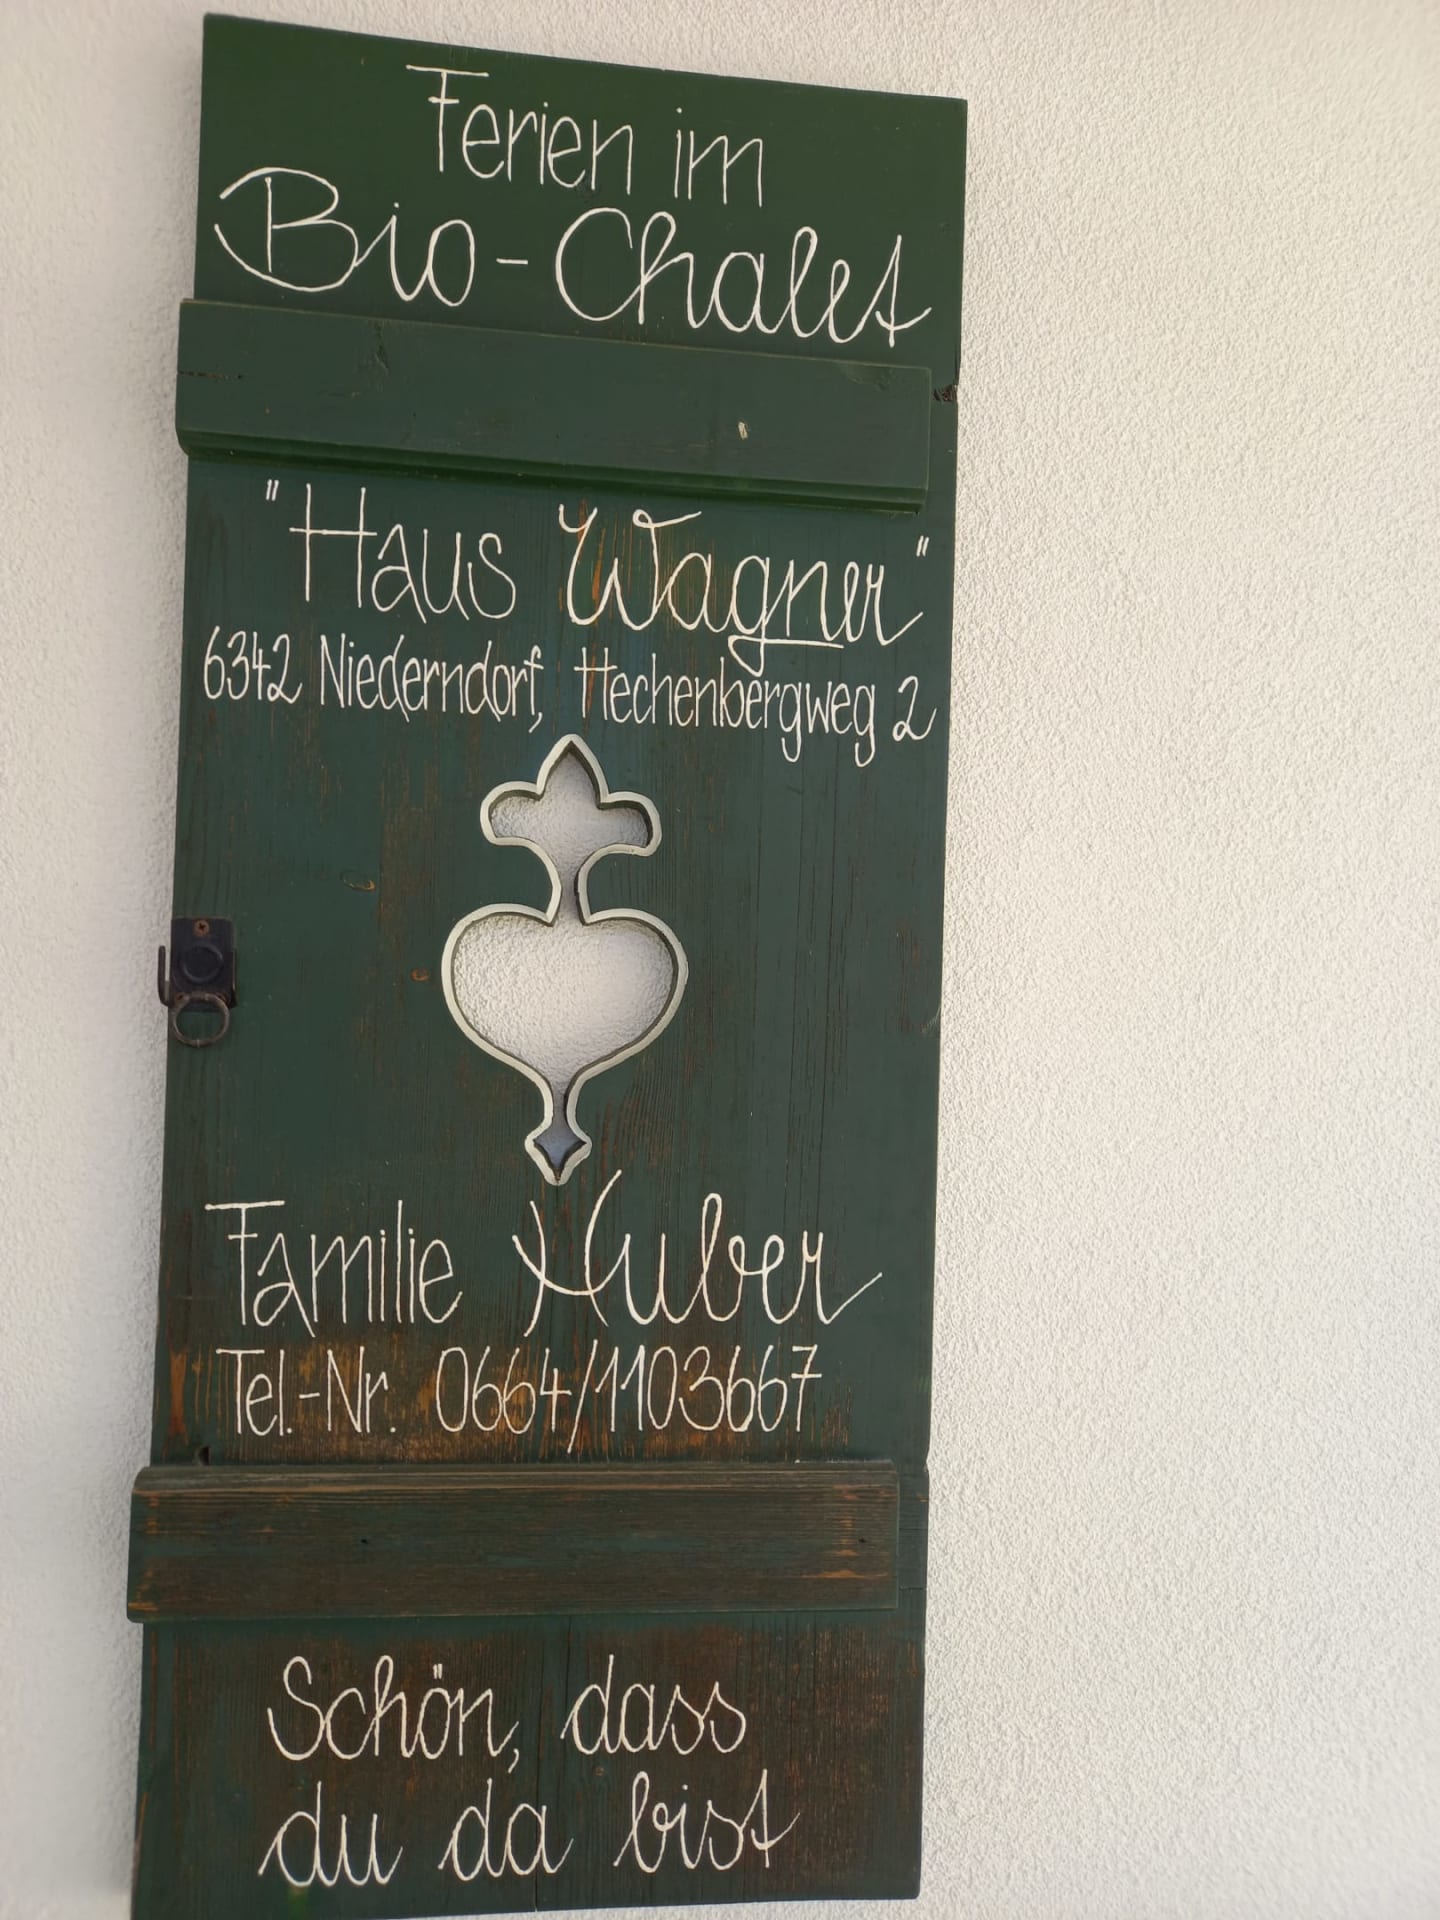 Ferien im
Bio-Chalet
"Haus Wagner"
6342 Niederndorf, Hechenbergweg 2
Familie Huber
Tel.-Nr. 0664/1103667
Schön, dass
du da bist